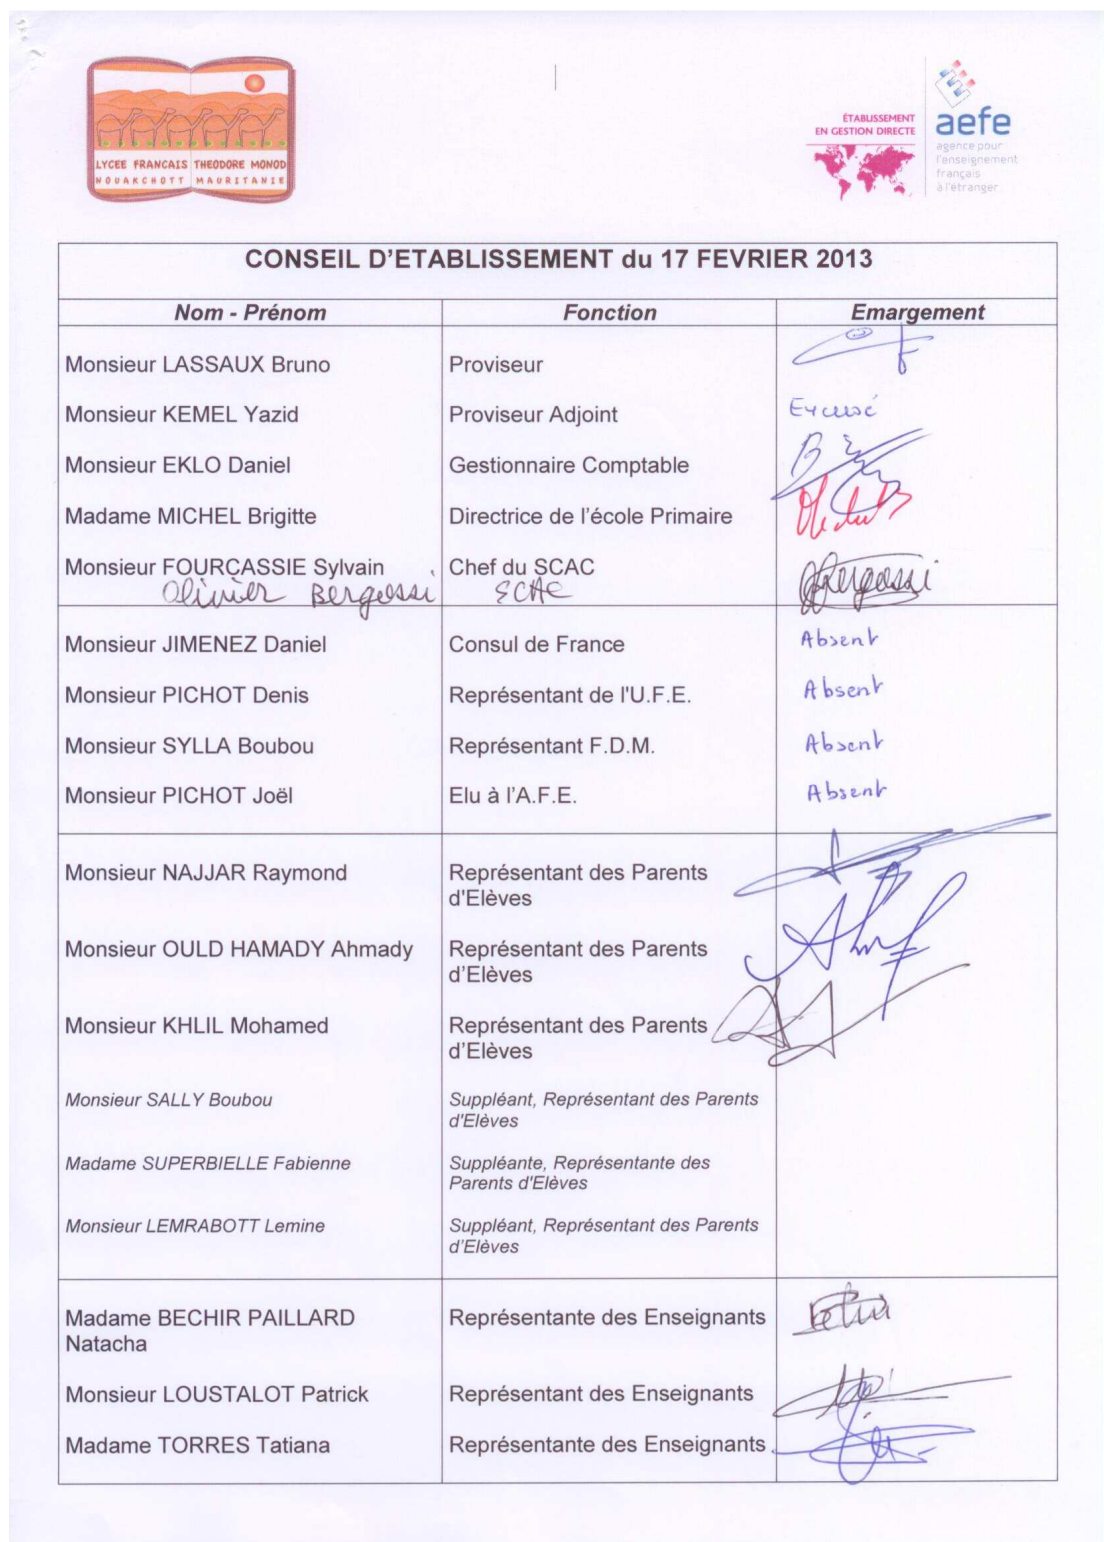 LYCEE FRANCAIS THEODORE MONOD
NOUAKCHOTT MAURITANIE
ÉTABLISSEMENT
EN GESTION DIRECTE
aefe
agence pour
l'enseignement
français
à l'étranger
CONSEIL D'ETABLISSEMENT du 17 FEVRIER 2013
Nom - Prénom Fonction Emargement
Monsieur LASSAUX Bruno Proviseur
Monsieur KEMEL Yazid Proviseur Adjoint Excusé
Monsieur EKLO Daniel Gestionnaire Comptable
Madame MICHEL Brigitte Directrice de l'école Primaire
Monsieur FOURCASSIE Sylvain Chef du SCAC
Olivier Bergossi SCAC
Monsieur JIMENEZ Daniel Consul de France Absent
Monsieur PICHOT Denis Représentant de l'U.F.E. Absent
Monsieur SYLLA Boubou Représentant F.D.M. Absent
Monsieur PICHOT Joël Elu à l'A.F.E. Absent
Monsieur NAJJAR Raymond Représentant des Parents
d'Elèves
Monsieur OULD HAMADY Ahmady Représentant des Parents
d'Elèves
Monsieur KHLIL Mohamed Représentant des Parents
d'Elèves
Monsieur SALLY Boubou Suppléant, Représentant des Parents
d'Elèves
Madame SUPERBIELLE Fabienne Suppléante, Représentante des
Parents d'Elèves
Monsieur LEMRABOTT Lemine Suppléant, Représentant des Parents
d'Elèves
Madame BECHIR PAILLARD Représentante des Enseignants
Natacha
Monsieur LOUSTALOT Patrick Représentant des Enseignants
Madame TORRES Tatiana Représentante des Enseignants